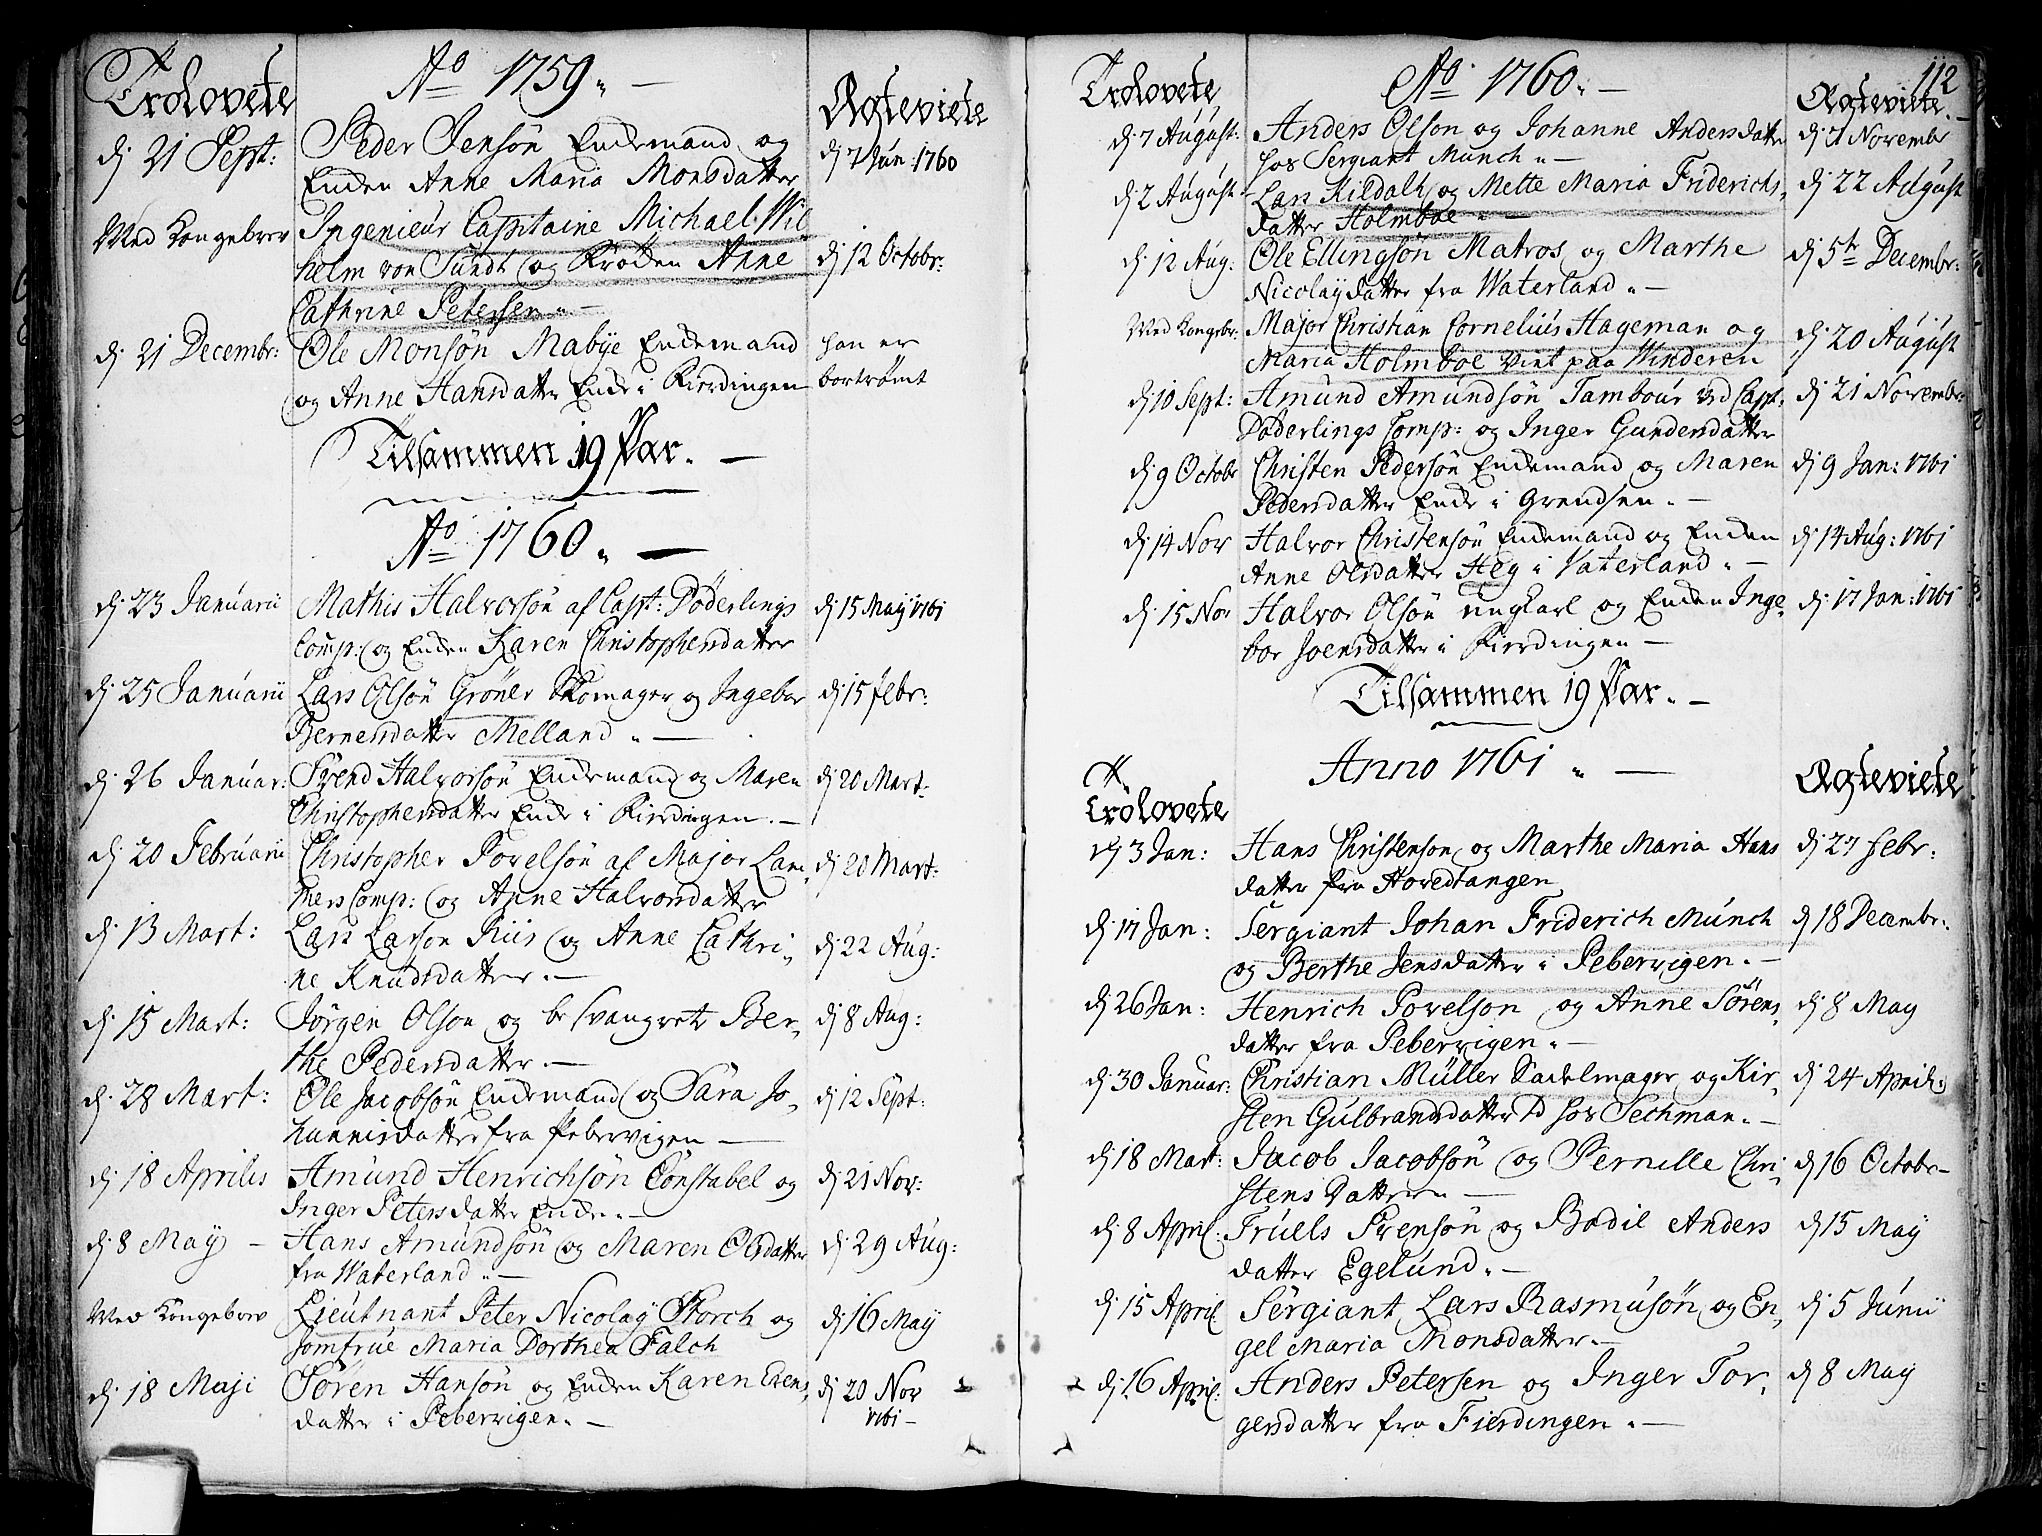 Trolovete
No 1759
Ægteviete
dj 21 Sept:
Peder Jensøn Enkemand og
Enken Anne Maria Monsdatter
dj 7 Jun: 1760
Med Kongebrev
Ingenieur Capitaine Michael Wil
helm von Sundt og Frøken Anne
Cathrine Petersen
dj 12 Octobr:
dj 21 Decembr:
Ole Monsøn Mabye Enkemand
og Anne Hansdatter Enke i Fierdingen
han er
bortrømt
Tilsammen 19 Par.
No 1760
dj 23 Januarii
Mathis Halvorsøn af Capt: Døderlings
Comp: og Enken Karen Christophersdatter
dj 15 May 1761
dj 25 Januarii
Lars Olsøn Grøner Skomager og Ingebor
Bernersdatter Melland
dj 15 febr:
dj 26 Januar:
Svend Halvorsøn Enkemand og Maren
Christophersdatter Enke i Fierdingen.
dj 20 Mart:
dj 20 Februarii
Christopher Povelsøn af Major Lam
mers Comp: og Anne Halvorsdatter
dj 20 Mart:
dj 13 Mart:
Lars Larsøn Riis og Anne Cathri,
ne Knudsdatter.
dj 22 Aug:
dj 15 Mart:
Jørgen Olsøn og besvangrede Ber,
the Pedersdatter.
dj 8 Aug:
dj 28 Mart:
Ole Jacobsøn Enkemand og Sara Jo,
hannisdatter fra Pebervigen
dj 12 Sept:
dj 18 Aprilis
Amund Henrichsøn Constabel og
Inger Petersdatter Enke.
dj 21 Nov:
dj 8 May
Hans Amundsøn og Maren Olsdatter
fra Waterland
dj 29 Aug:
Med Kongebrev
Lieutnant Peter Nicolay Storch og
Jomfrue Maria Dorthea Falch
dj 16 May
dj 18 Maji
Søren Hansøn og Enken Karen Evens,
datter i Pebervigen.
dj 20 Nov
1761
112
Trolovete
No 1760
Ægteviete
dj 7 August:
Anders Olsøn og Johanne Andersdatter
hos Sergiant Munch
dj 7 Novembr
dj 2 August
Lars Kildalh og Mette Maria Friderichs,
datter Holmboe
dj 22 August
dj 12 Aug:
Ole Ellingsøn Matros og Marthe
Nicolaydatter fra Waterland
dj 5te Decembr:
Med Kongebr:
Major Christian Cornelius Hageman og
Maria Holmboe viet paa Winderen
dj 20 August
dj 10 Sept:
Amund Amundsøn Tambour ved Capt:
Døderlings Comp: og Inger Gundersdatter
dj 21 Novembr:
dj 9 Octobr
Christen Pedersøn Enkemand og Maren
Pedersdatter Enke i Grendsen.
dj 9 Jan: 1761
dj 14 Nov
Halvor Christensøn Enkemand og Enken
Anne Olsdatter Heg i Vaterland
dj 14 Aug: 1761
dj 15 Nov
Halvor Olsøn ungkarl og Enken Inge,
bor Joensdatter i Fierdingen
dj 17 Jan: 1761
Tilsammen 19 Par.
Anno 1761
Trolovete
Ægteviete
dj 3 Jan:
Hans Christensøn og Marthe Maria Hans
datter fra Hovedtangen
dj 27 febr:
dj 17 Jan:
Sergiant Johan Friderich Munch
og Berthe Jensdatter i Pebervigen.
dj 18 Decembr:
dj 26 Jan:
Henrich Povelsøn og Anne Sørens,
datter fra Pebervigen
dj 8 May
dj 30 Januar:
Christian Müller Sadelmager og Kir,
sten Gulbrandsdatter hos Techman.
dj 24 April:
dj 18 Mart:
Jacob Jacobsøn og Pernille Chri
stens Datter
dj 16 Octobr
dj 8 April:
Truels Svensøn og Bodil Anders
datter Egelund.
dj 15 May
dj 15 April
Sergiant Lars Rasmusøn og En,
gel Maria Monsdatter.
dj 5 Junii
dj 16 April:
Anders Petersen og Inger Tor,
gersdatter fra Fierdingen
dj 8 May